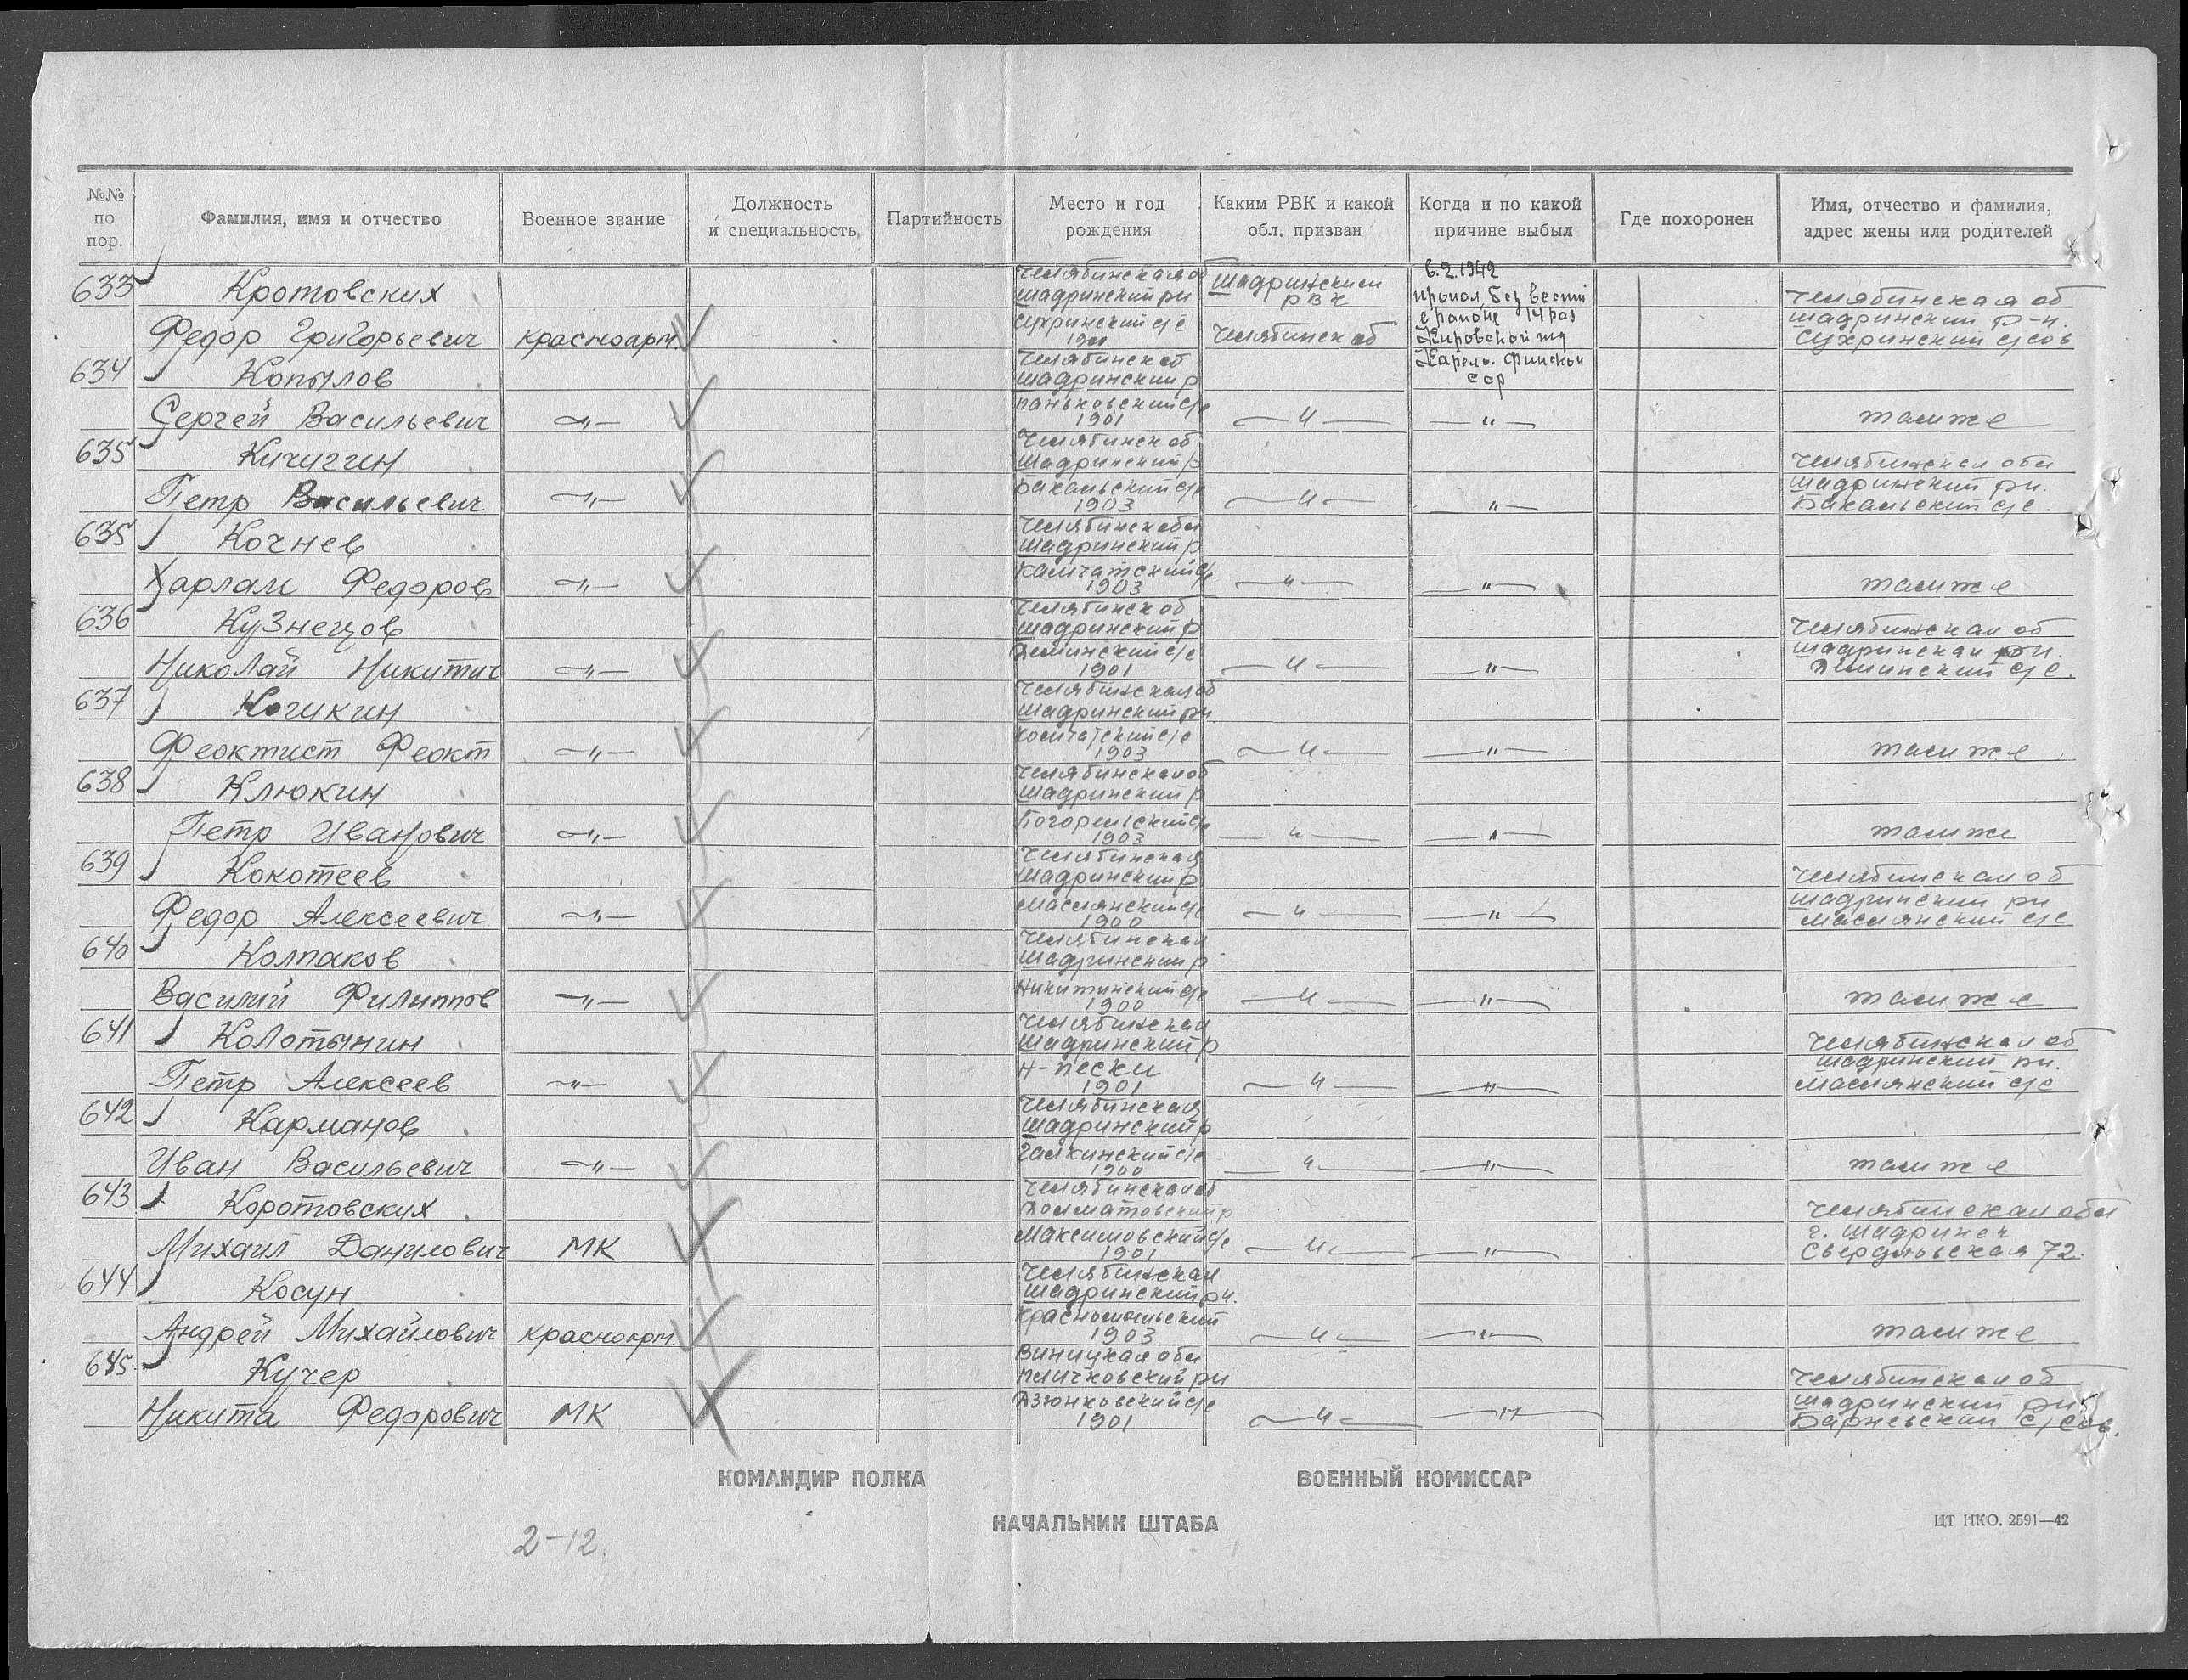 №№ по пор.
Фамилия, имя и отчество
Военное звание
Должность и специальность
Партийность
Место и год рождения
Каким РВК и какой обл. призван
Когда и по какой причине выбыл
Где похоронен
Имя, отчество и фамилия, адрес жены или родителей
633 Кротовских Челябинская об Шадринский рн Шадринским РВК 6.2.1942 пропал без вести Челябинская об
Федор Григорьевич красноарм. Сухринский с/с Челябинск об с районе 14 раз Кировской жд Шадринский р-н. Сухринский с/сов
634 Копылов Челябинск об Шадринский р Карело-Финской сср
Сергей Васильевич —„— 1901 —„— —„— там же
635 Кичигин Челябинск об Шадринский р Челябинская обл
Петр Васильевич —„— Бакальский с/с 1903 —„— —„— Шадринский рн. Бакальский с/с.
635 Кочнев Челябинск обл Шадринский р
Харлам Федоров —„— Камчатский с/с 1903 —„— —„— там же
636 Кузнецов Челябинск об Шадринский р Челябинская об
Николай Никитич —„— Деминский с/с 1901 —„— —„— Шадринская рн. Деминский с/с.
637 Кочикин Челябинская об Шадринский рн
Феоктист Феокт —„— 1903 —„— —„— там же
638 Клюкин Челябинская об Шадринский р
Петр Иванович —„— Погорельский с/с 1903 —„— —„— там же
639 Кокотеев Челябинская Шадринский р Челябинская об
Федор Алексеевич —„— Маслянский с/с 1900 —„— —„— Шадринский рн Маслянский с/с
640 Колпаков Челябинская Шадринский р
Василий Филиппов —„— Никитинский с/с 1900 —„— —„— там же
641 Колотынин Челябинская Шадринский р Челябинская об
Петр Алексеев —„— Н-Пески 1901 —„— —„— Шадринский рн. Маслянский с/с
642 Карманов Челябинская Шадринский р
Иван Васильевич —„— Галкинский с/с 1900 —„— —„— там же
643 Коротовских Челябинская об Долматовский р Челябинская обл
Михаил Данилович МК Максимовский с/с 1901 —„— —„— г. Шадринск Свердловская 72.
644 Косун Челябинская Шадринский рн.
Андрей Михайлович красноарм. 1903 —„— —„— там же
645. Кучер Виницкая обл Челябинская об
Никита Федорович МК Дзюнковский с/с 1901 —„— —„— Шадринский рн Барневский с/сов.
КОМАНДИР ПОЛКА
ВОЕННЫЙ КОМИССАР
НАЧАЛЬНИК ШТАБА
ЦТ НКО. 2591—42
2-12.